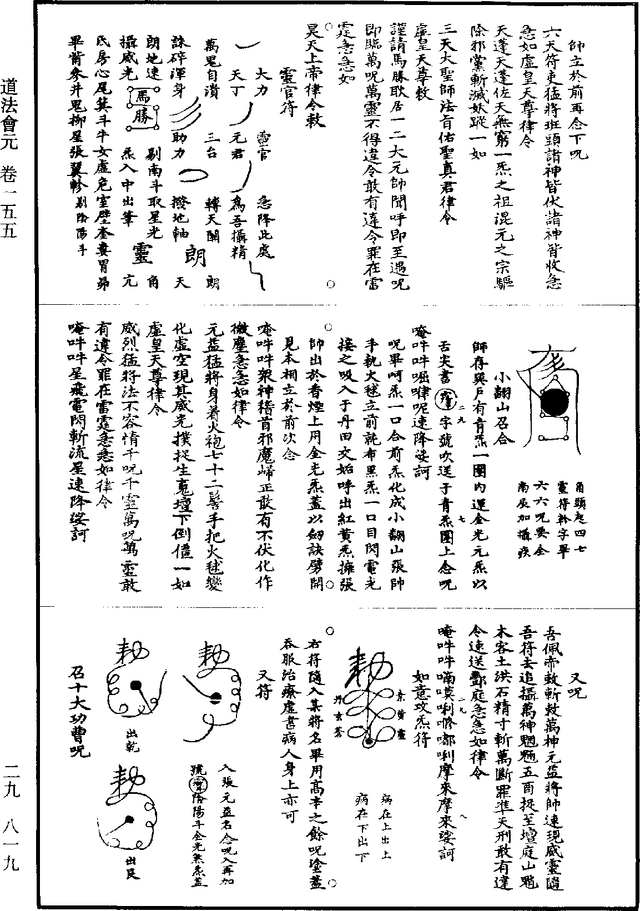 道法會元 卷一五五
師立於前再念下呪
六天符吏猛將班頭諸神皆伏諸神皆收急
急如虛皇天尊律令
天蓬天蓬佐天無窮一炁之祖混元之宗驅
除邪黨斬滅妖蹤一如
三天大聖師法旨佑聖真君律令
虛皇天尊敕
謹請馬勝耿居一二大元帥聞呼即至遇呪
即臨萬呪萬靈不得違令敢有違令罪在雷
霆急急如
昊天上帝律令敕
靈官符
大力 靈官 急降此處
天丁 元君 為吾攝精
萬鬼自潰 三台 轉天關 朗
誅碎渾身 助力 撥地軸 天
朗地速 馬勝 剔南斗取星光 朗 角
攝威光 炁入中出筆 靈 亢
氐房心尾箕斗牛女虛危室壁奎婁胃昴
畢觜參井鬼柳星張翼軫 剔陰陽斗
角頭起四七
靈符幹字單
六六呪要全
南辰加攝疾
小翻山召合
師存巽戶有青炁一團內運金光元炁以
舌尖書字號吹送于青炁團上念呪
唵吽吽囉律呢速降娑訶
呪畢呵炁一口合前炁化成小翻山張帥
手執火毬立前就布黑炁一口目閃電光
接之吸入于丹田交姤呼出紅黃炁擁張
帥出於香煙上用金光炁蓋以劍訣劈開
見本相立於前次念
唵吽吽架神稽首邪魔歸正敢有不伏化作
微塵急急如律令
元益猛將身着火袍七十二髻手把火毬變
化虛空現其威光撲捉生鬼壇下倒僵一如
虛皇天尊律令
威烈猛將法不容情千呪千靈萬呪萬靈敢
有違令罪在雷霆急急如律令
唵吽吽星飛電閃斬流星速降娑訶
又呪
吾佩帝敕斬敕萬神元益將帥速現威靈隨
吾符去追攝萬神魍魎五酉捉至壇庭山魈
木客土洪石精寸斬萬斷罪準天刑敢有違
令速送酆庭急急如律令
唵吽吽喃嘆唎㗭嘟唎摩來摩來娑訶
如意攻炁符
病在上出上
病在下出下
右符隨入某將名畢用高奉之餘呪塗蓋
吞服治療虛書病人身上亦可
又符
入張元益名念呪入再加
陰陽斗金光無炁蓋
出乾
出艮
召十大功曹呪
二九 八一九